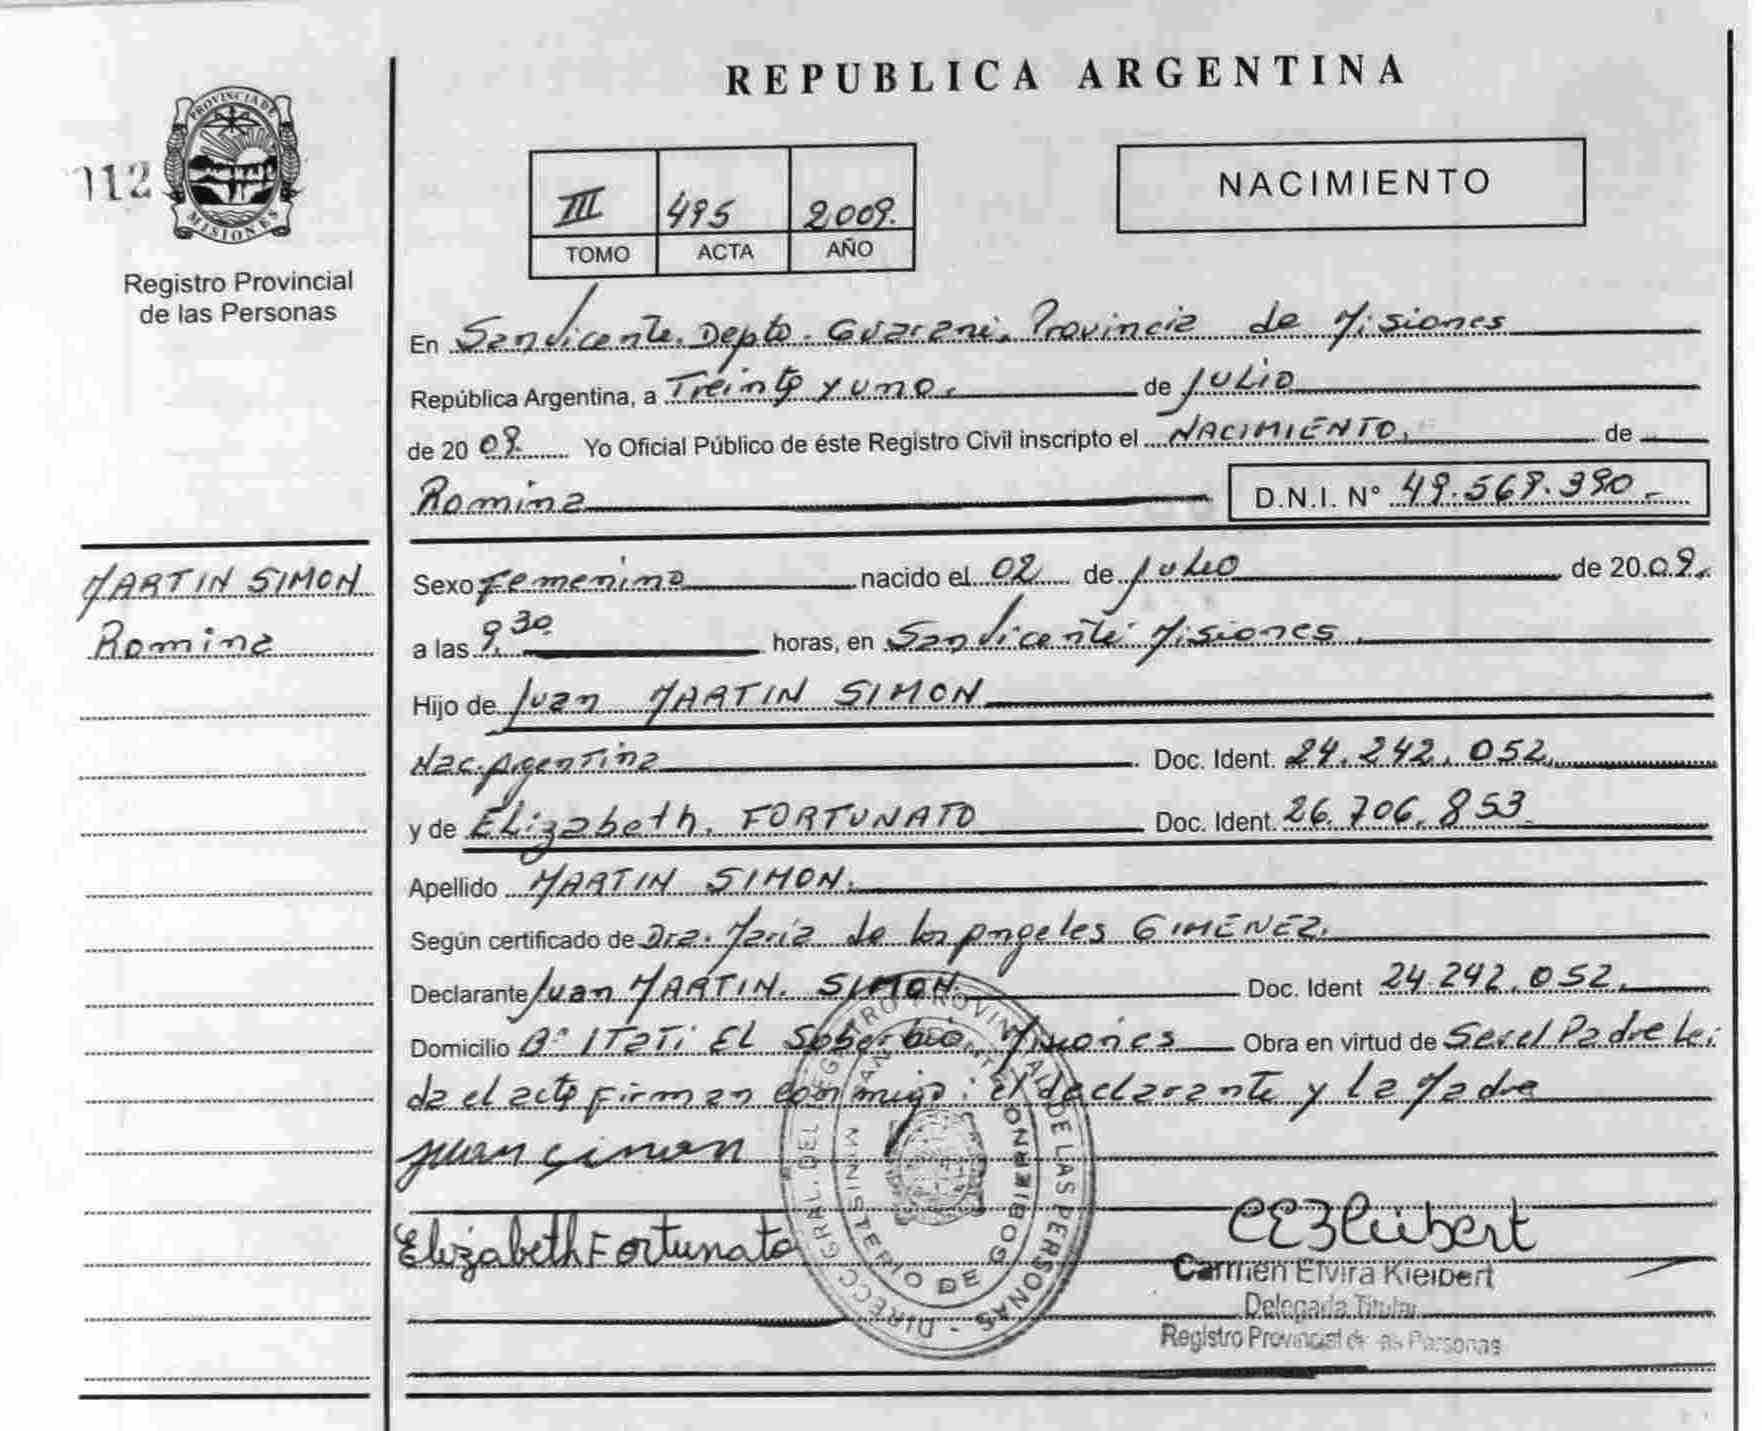 REPUBLICA ARGENTINA
PROVINCIA DE
MISIONES
112
Registro Provincial
de las Personas
III 495 2009.
TOMO ACTA AÑO
NACIMIENTO
En San Vicente. Depto. Guarani. Provincia de Misiones
República Argentina, a Treinta y uno. de Julio
de 20 09. Yo Oficial Público de éste Registro Civil inscripto el NACIMIENTO. de
Romina D.N.I. N° 49.569.390.-
MARTIN SIMON
Romina
Sexo Femenino nacido el 02 de Julio de 20.09.
a las 9.30 horas, en San Vicente Misiones.
Hijo de Juan MARTIN SIMON
Nac. Argentina Doc. Ident. 24.242.052.
y de Elizabeth. FORTUNATO Doc. Ident. 26.706.853.
Apellido MARTIN SIMON.
Según certificado de Dra. Maria de los Angeles GIMENEZ.
Declarante Juan MARTIN. SIMON. Doc. Ident 24.242.052.
Domicilio B° ITATI El Soberbio Misiones Obra en virtud de Ser el Padre Lei
da el acta firman conmigo: el declarante y la Madre
juan simon
Elizabeth Fortunato
DIRECC. GRAL. DEL REGISTRO PROVINCIAL DE LAS PERSONAS -
MINISTERIO DE GOBIERNO
Carmen Elvira Kleibert
Delegada Titular
Registro Provincial de las Personas